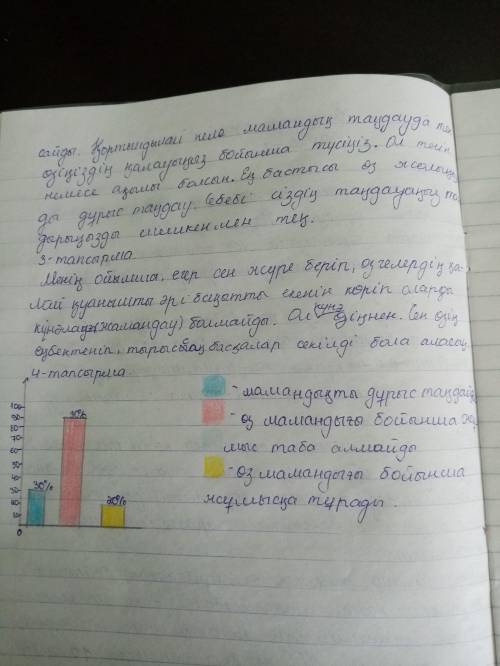 сайды. Қортындылай келе мамандық таңдауда тек
өзіңіздің қалауыңыз бойынша түсіңіз. Ол тегін
немесе ақылы болсын. Ең бастысы өз жолың
ды дұрыс таңдау. Себебі сіздің таңдауыңыз
мен тең.
3-тапсырма
Менің ойымша, егер сен жүре беріп, өзгелердің қа
лай қуанышты әрі бақытты екенін көріп оларды
күнәлауға (жамандау) болмайды. Ол күнә өзіңнен. Сен өзің
еңбектеніп, тырыссаң басқалар секілді бола аласаң
4-тапсырма
100
90
80
70
60
50
40
30
20
10
0
30%
90%
20%
- мамандықты дұрыс таңдай
- өз мамандығы бойынша жұ
мыс таба алмайды
- өз мамандығы бойынша
жұмысқа тұрады.